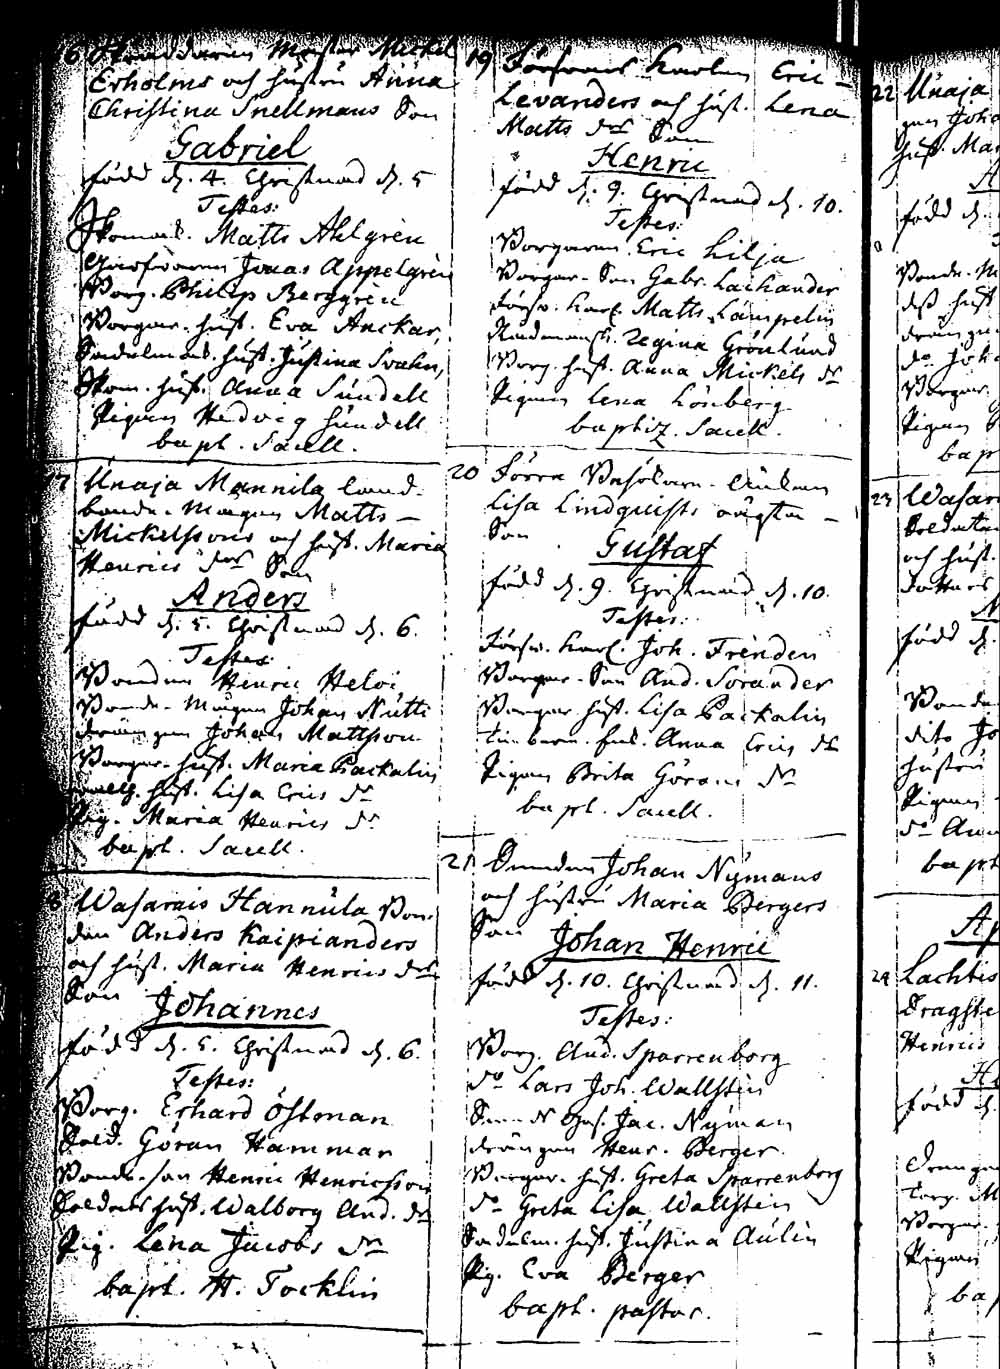 16 Mäster Mickel
Erholms och hustru Anna
Christina Snellmans Son
Gabriel
född d. 4. Christnad d. 5
Testes:
Matts Ahlgren
Garfvaren Jonas Appelgren
Borg. Philip Berggren
Borgar. hust. Eva Anckar,
hust. Justina Svahn,
Skom. hust. Anna Sundell
Pigan Hedvig Sundell
bapt. Sacell.
17 Unaja Mannila land-
bonde-Mågen Matts
Mickelssons och hust. Maria
Henrics dr Son
Anders
född d. 5. Christnad d. 6.
Testes:
Bonden Henric Heloi
Bonde-Mågen Johan Nutti
drängen Johan Mattsson
Borgar. hust. Maria Packalin
hust. Lisa Erics dr
Pig. Maria Henrics dr
bapt. Sacell.
18 Wasarais Hannula Bon-
den Anders Kaipianders
och hust. Maria Henrics dr
Son
Johannes
född d. 5. Christnad d. 6.
Testes:
Borg. Erhard Östman
Sold. Göran Hamman
Bonde-son Henric Henricsson
Soldats hust. Walborg And. dr
Pig. Lena Jacobs dr
bapt. H. Tocklin
19 Försvars Karlen Eric
Levanders och hust. Lena
Matts dr Son
Henric
född d. 9. Christnad d. 10.
Testes:
Borgaren Eric Lilja
Borgar-Son Gabr. Lachander
Försv. Karl. Matts Lampelin
Regina Grönlund
Borg. hust. Anna Mickels dr
Pigan Lena Lönberg
baptiz. Sacell.
20 Förra
Lisa Lindquists oägta
Son
Gustaf
född d. 9. Christnad d. 10.
Testes:
Försv. Karl. Joh. Frenden
Borgar-Son And. Sorander
Borgar hust. Lisa Packalin
Anna Erics dr
Pigan Brita Görans dr
bapt. Sacell.
21 Johan Nymans
och hustru Maria Bergers
Son
Johan Henric
född d. 10. Christnad d. 11.
Testes:
Borg. And. Sparrenborg
do Lars Joh. Wallstén
Jac. Nyman
drängen Henr. Berger
Borgar. hust. Greta Sparrenborg
do Greta Lisa Wallstén
Sadelm. hust. Justina Aulin
Pig. Eva Berger
bapt. pastor.
22 Unaja
Joha
hust. Mar
A
född d.
Bonde-M
dess hust
dränge
do Joh
Borgar.
Pigan
bap
23 Wasar
Soldaten
och hust.
dotters
född d.
Bonde
dito Jo
hustru
Pigan
do Ann
bapt
Ap
24 Lachtis
Dragste
Henrics
He
född d.
Dränge
Torp. M
Borgar.
Pigan
bap